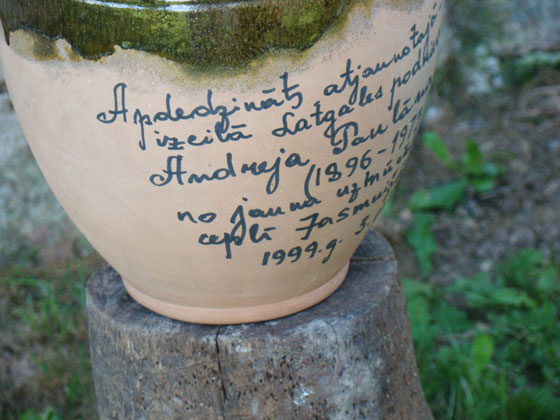 Apdedzināts, atjaunotajā
izcilā Latgales podnieka
Andreja Paulāna
(1896-197
no jauna uzmūrē
ceplī Jasmuižā
1999.g. 3.